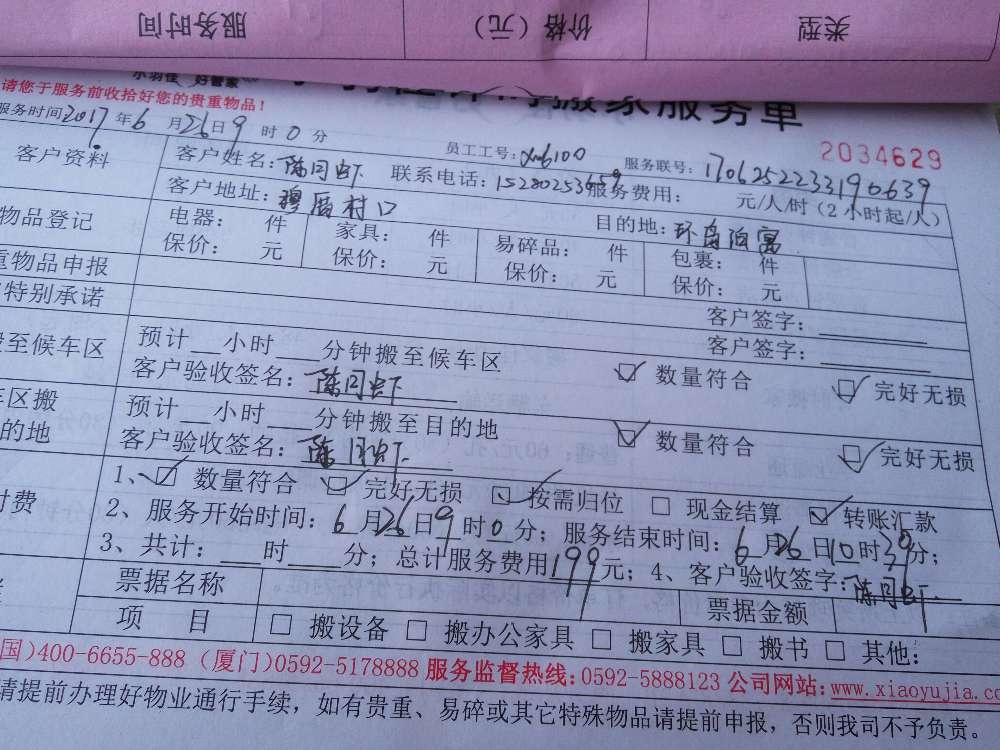 类型 价格（元） 服务时间
小羽佳 好管家
搬家服务单
请您于服务前收拾好您的贵重物品！
2034629
服务时间2017年6月26日9时0分 员工工号：xm6100 服务联号：1706252233190639
客户资料 客户姓名：陈同虾 联系电话：15280253659 服务费用： 元/人/时（2小时起/人）
客户地址：穆厝村口 目的地：环岛泊寓
物品登记 电器： 件 家具： 件 易碎品： 件 包裹： 件
保价： 元 保价： 元 保价： 元 保价： 元
重物品申报 客户签字：
特别承诺 客户签字：
至候车区 预计__小时___分钟搬至候车区
客户验收签名：陈同虾 ☑ 数量符合 ☑ 完好无损
车区搬 预计___小时____分钟搬至目的地
的地 客户验收签名：陈同虾 ☑ 数量符合 ☑ 完好无损
付费 1、☑ 数量符合 ☑ 完好无损 ☑ 按需归位 □ 现金结算 ☑ 转账汇款
2、服务开始时间：6月26日9时0分；服务结束时间：6月26日10时39分；
3、共计：___时____分；总计服务费用199元；4、客户验收签字：陈同虾
票据名称 票据金额
项 目 □ 搬设备 □ 搬办公家具 □ 搬家具 □ 搬书 □ 其他：
国）400-6655-888（厦门）0592-5178888 服务监督热线：0592-5888123 公司网站：www.xiaoyujia.co
请提前办理好物业通行手续，如有贵重、易碎或其它特殊物品请提前申报，否则我司不予负责。